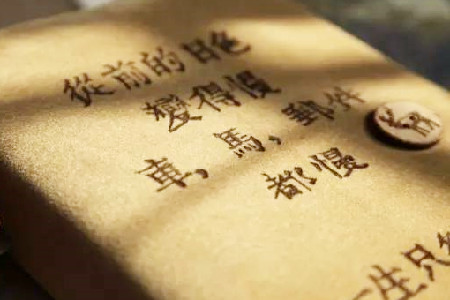 從前的日色
變得慢
車,馬,郵件
都慢
生只